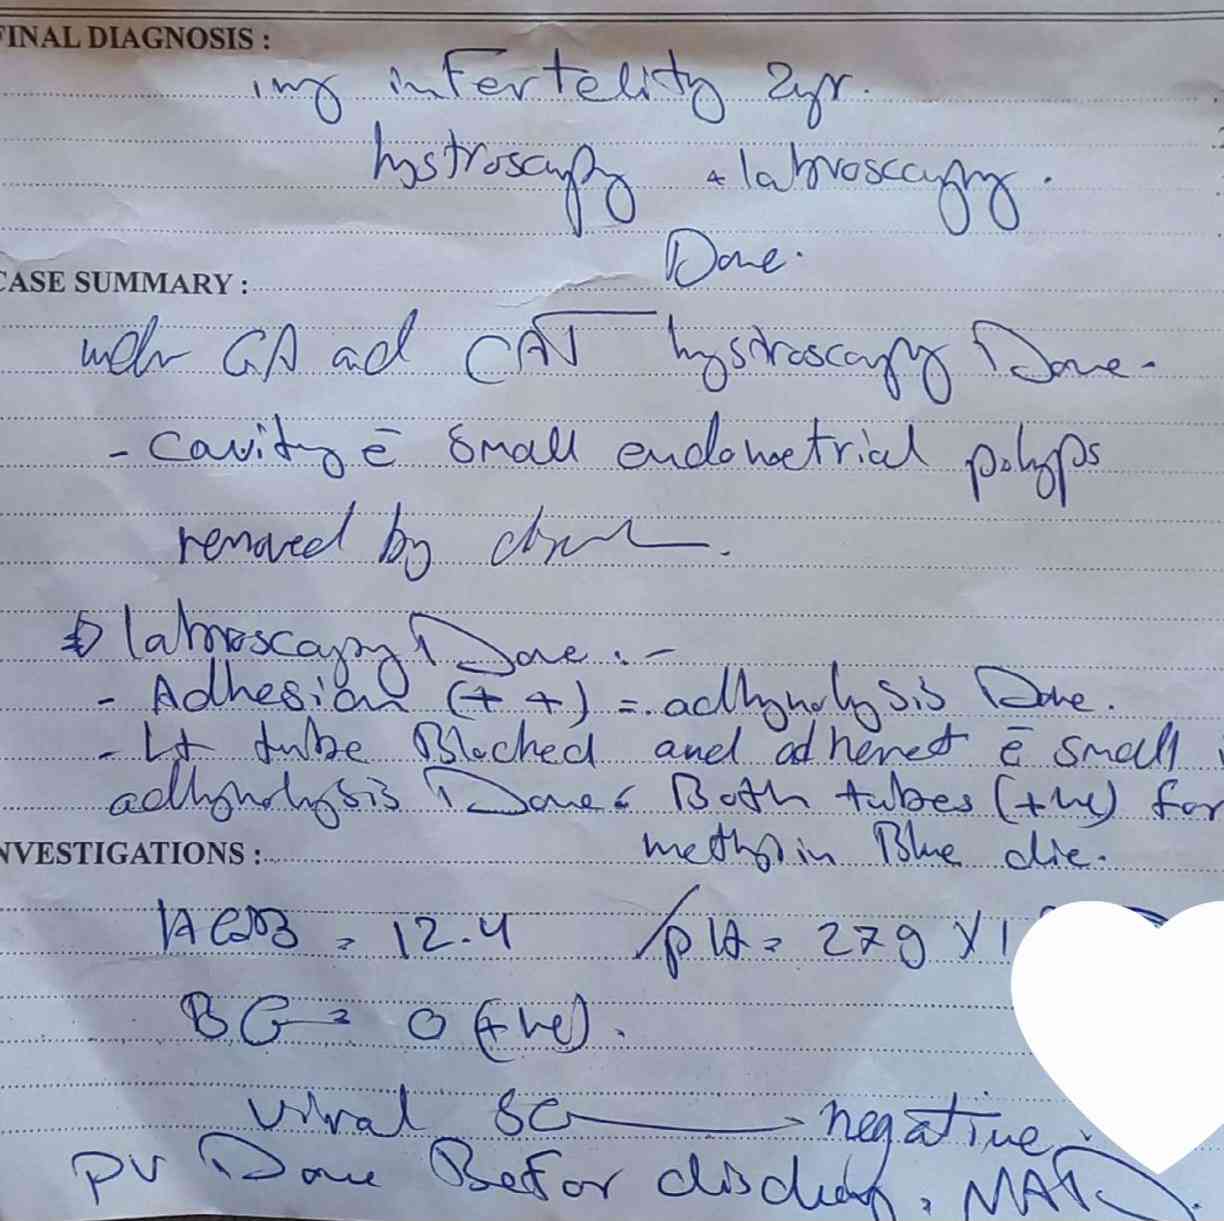 FINAL DIAGNOSIS :
infertelity 2yr.
hystroscapy + labroscapy.
Done.
CASE SUMMARY :
GA ad hystroscapy Done.
- cavity c̄ small endometrial polyps
removed by
labroscapy Done. -
- Adhesion (++) = adhynolysis Done.
- Lt tube Blocked and adherent c̄ small
adhynolysis Done. Both tubes (+ve) for
INVESTIGATIONS :
methylin Blue die.
= 12.4 plt = 279 X1
BG = O (+ve).
viral SC negative.
PV Done Befor